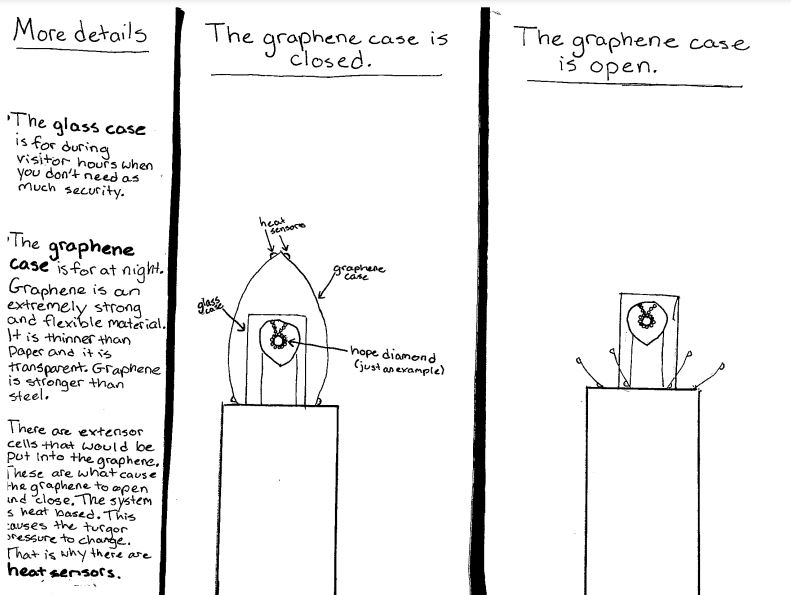 More details
'The glass case
is for during
visitor hours when
you don't need as
much security.
'The graphene
case is for at night.
Graphene is an
extremely strong
and flexible material.
It is thinner than
paper and it is
transparent. Graphene
is stronger than
steel.
There are extensor
cells that would be
put into the graphene.
These are what cause
the graphene to open
and close. The system
is heat based. This
causes the turgor
pressure to change.
That is why there are
heat sensors.
The graphene case is
closed.
heat
sensors
graphene
case
glass
case
hope diamond
(just an example)
The graphene case
is open.